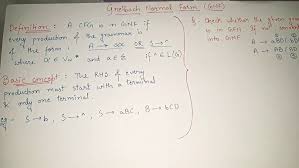 Greibach Normal Form (GNF)
Definition: A CFG is in GNF if
every production of the grammar is
of the form A → aα OR S → ^
where α ∈ Vn* and a ∈ Σ if ^ ∈ L(G)
Basic concept: The RHS of every
production must start with a terminal
& only one terminal.
eg → S → b, S → ^, S → aBC, B → bCD
Check whether the given
is in GNF If no
into GNF
A →
A →